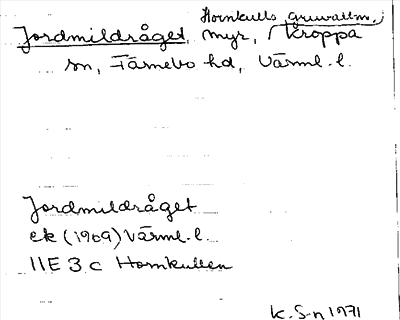 Hornkulls gruvallm.,
Jordmildråget, myr, Kroppa
sn, Färnebo hd, Värml. l.
Jordmildråget
ek (1969) Värml. l.
11E 3 c Hornkullen
K. S-n 1971